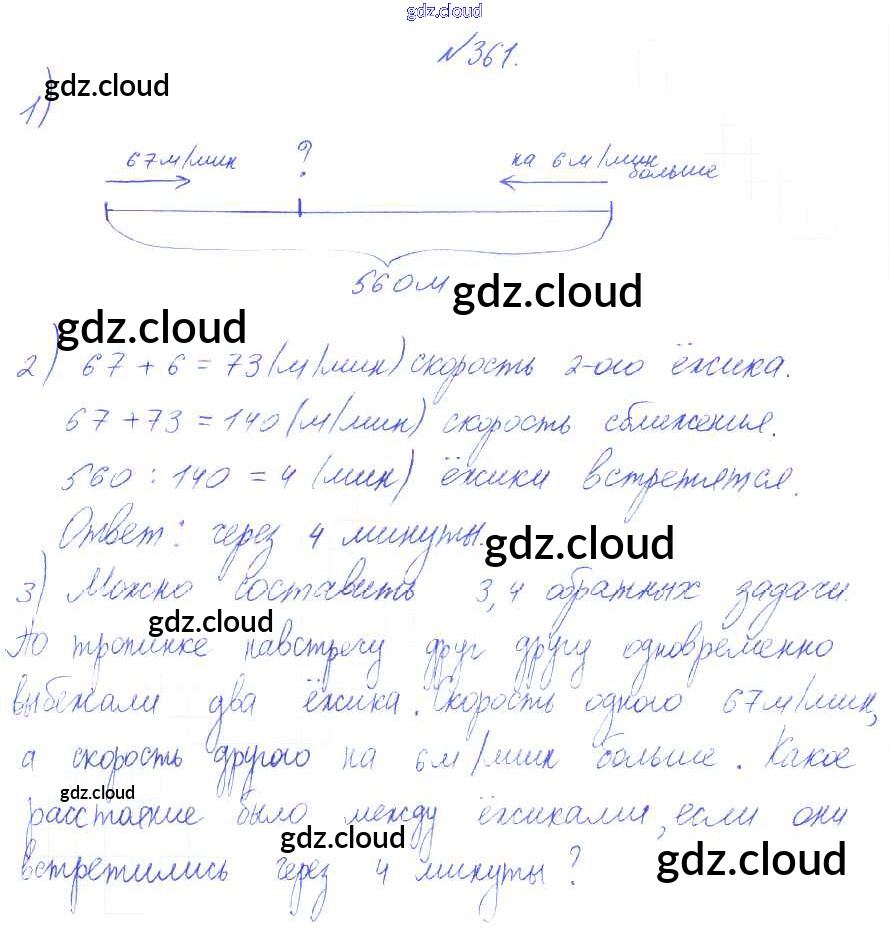 gdz.cloud
№361.
gdz.cloud
1)
67м/мин ? на 6м/мин
больше
560м
gdz.cloud
gdz.cloud
2) 67 + 6 = 73(м/мин) скорость 2-ого ёжика.
67 + 73 = 140(м/мин) скорость сближенья.
560 : 140 = 4 (мин) ёжики встретятся.
Ответ: через 4 минуты.
gdz.cloud
3) Можно составить 3,4 обратных задачи.
gdz.cloud
По тропинке навстречу друг другу одновременно
выбежали два ёжика. Скорость одного 67м/мин,
а скорость другого на 6м/мин больше. Какое
gdz.cloud
расстояние было между ёжиками, если они
gdz.cloud
gdz.cloud
встретились через 4 минуты?